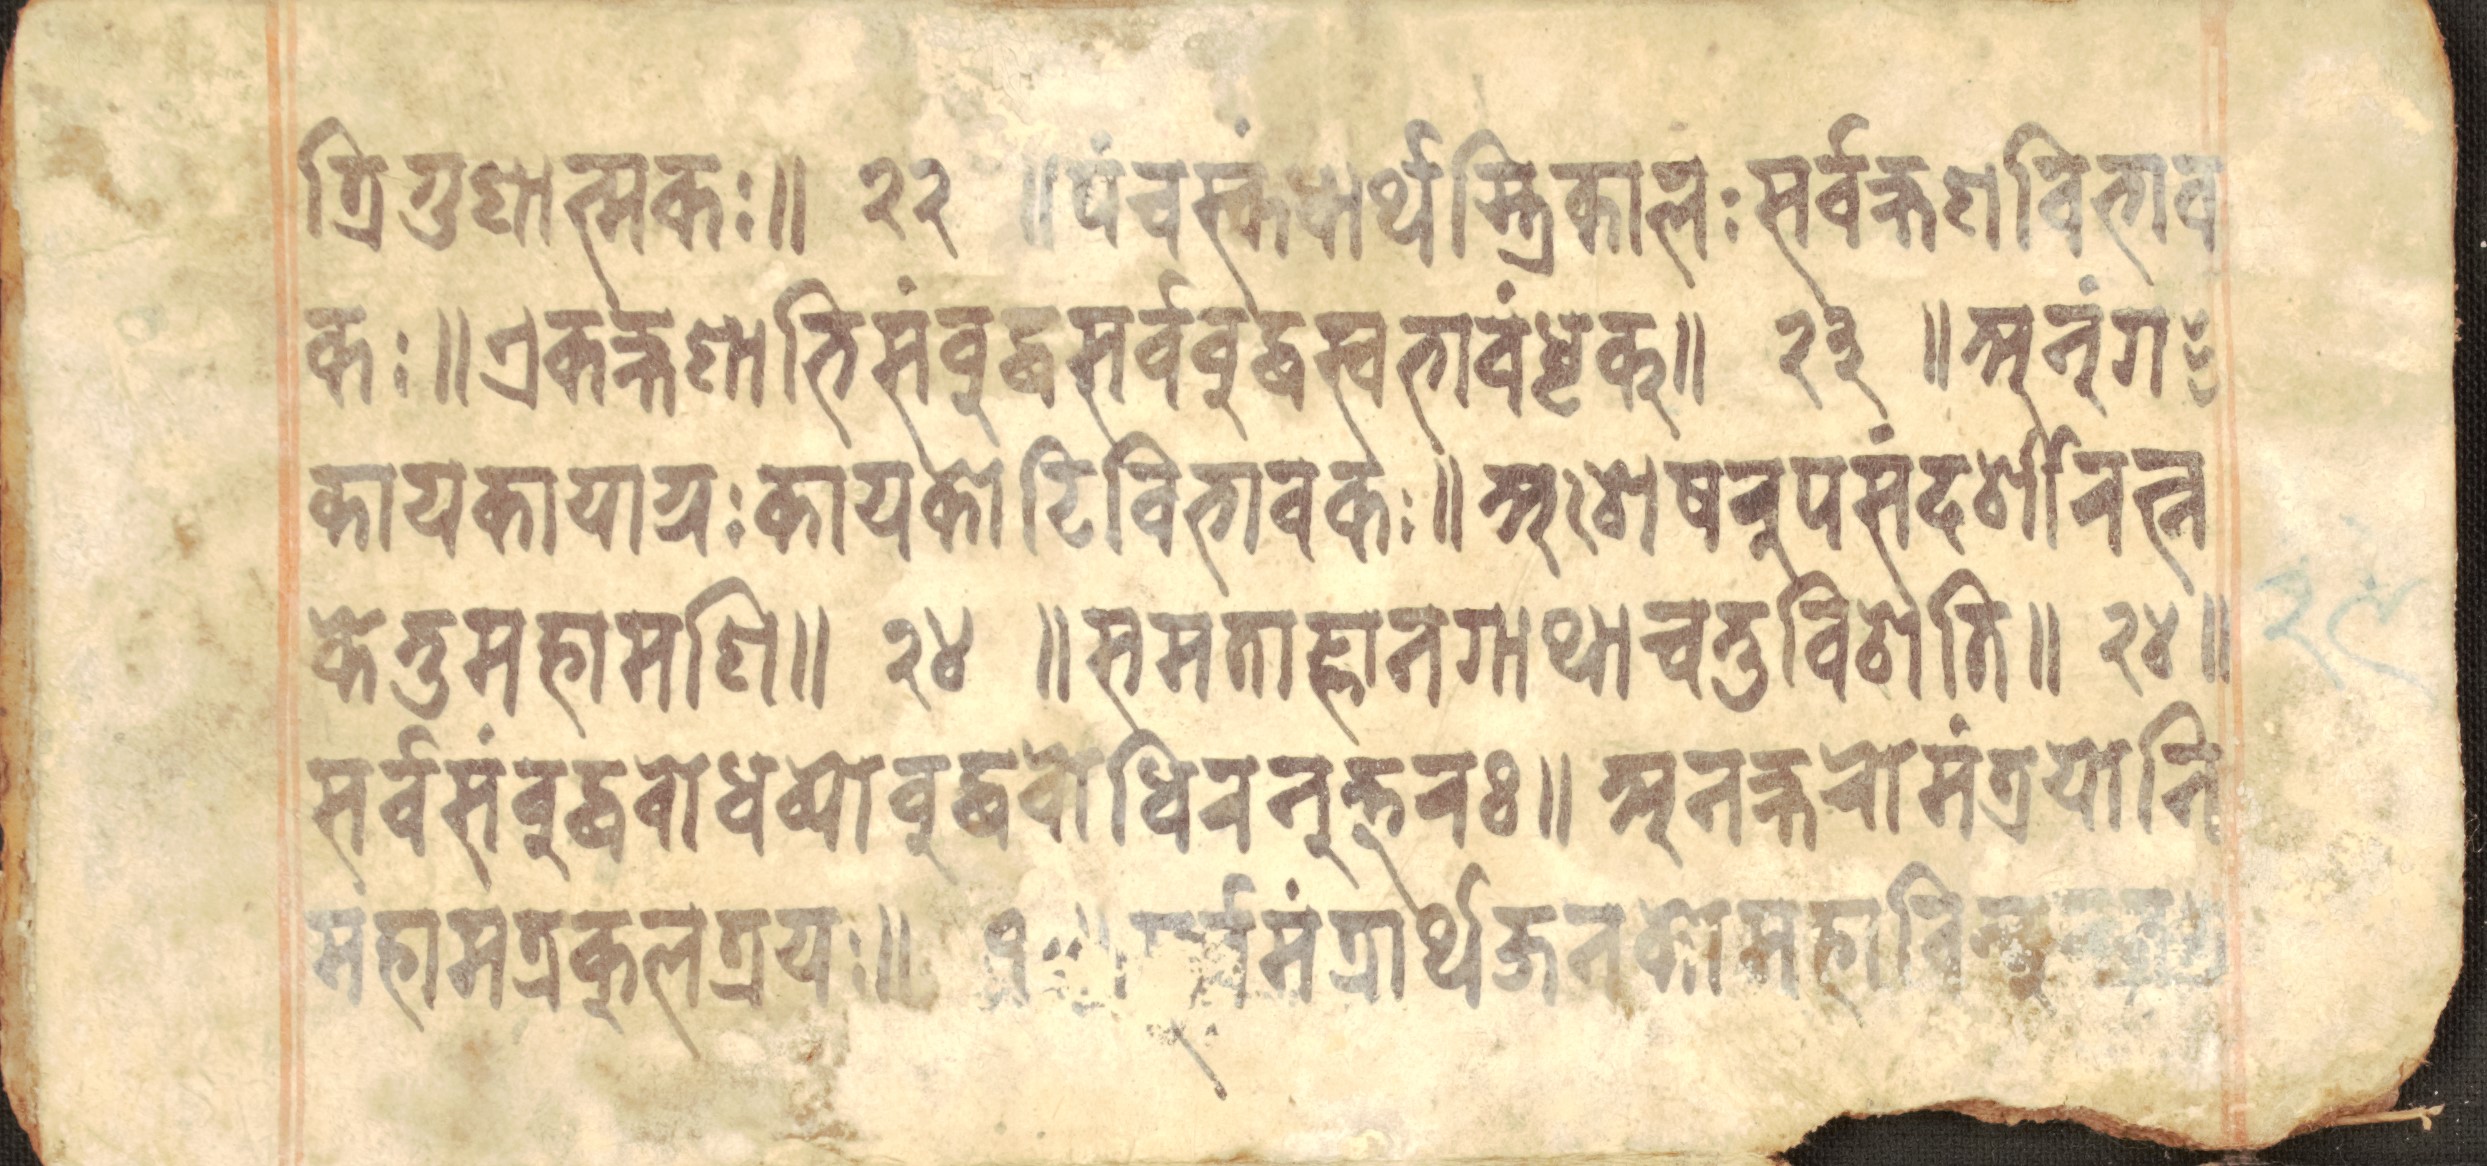 त्रिगुणात्मकः॥ २२ ॥पंचस्कंधार्थस्त्रिकालः सर्वक्षणविभाव
कः॥एकक्षणाभिसंबुद्धसर्वबुद्धस्वभावंधृक्॥ २३ ॥अनंगः
कायकायाग्रः कायकोटिविभावकः॥अशेषरुपसंदर्शीरत्न
केतुमहामणि॥ २४ ॥समताज्ञानगाथाचतुविंशति॥ २४॥
सर्वसंबुद्धबोधव्योबुद्धबोधिरनुत्तरः॥ अनक्षरोमंत्रयोनि
र्महामत्रकुलत्रयः॥ १ ॥सर्वमंत्रार्थजनकोमहावि
२९